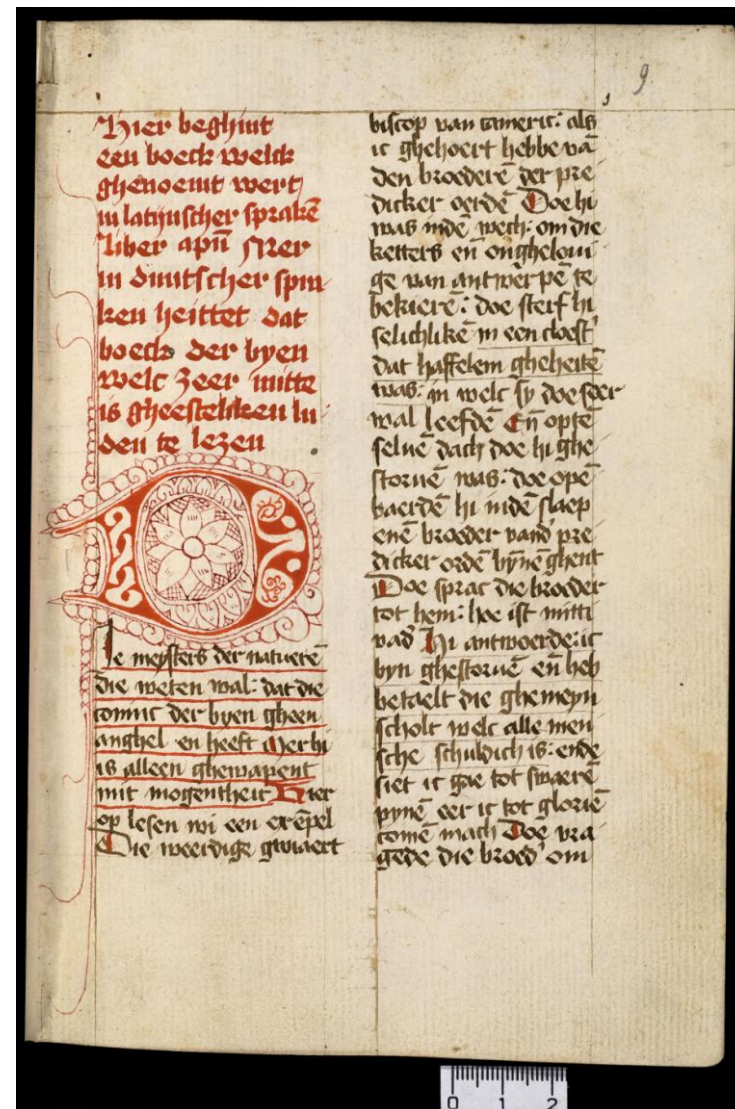 9
Hier beghint
een boeck welck
ghenoemt wert
in latijnscher sprakē
liber apū Mer
in duutscher spra
ken heittet dat
boeck der byen
welc zeer nutte
is gheesteliken lu
den te lezen
Die meysters der natuerē
die weten wal: dat die
coninc der byen gheen
anghel en heeft Mer hi
is alleen ghewapent
mit mogentheit Hier
op lesen wi een exēpel
Die weerdige gwiaert
biscop van cameric: als
ic ghehoert hebbe vā
den broederē der pre
dicker oerdē Doe hi
was indē wech: om die
ketters eñ ongheloui
ge van antwerpē te
bekierē: doe sterf hi
selichlikē in een cloest'
dat haffelem gheheitē
was: in welc sy doe seer
wal leefdē Eñ optē
seluē dach doe hi ghe
storuē was: doe opē
baerdē hi indē slaep
enē broeder vand' pre
dicker ordē bynē ghent
Doe sprac die broeder
tot hem: hoe ist mitti
vad' Hi antwoerde: ic
byn ghestoruē eñ heb
betaelt die ghemeyn
scholt welc alle men
sche schuldich is: ende
siet ic gae tot swaerē
pynē eer ic tot gloriē
comē mach Doe vra
gede die broed' om
0 1 2